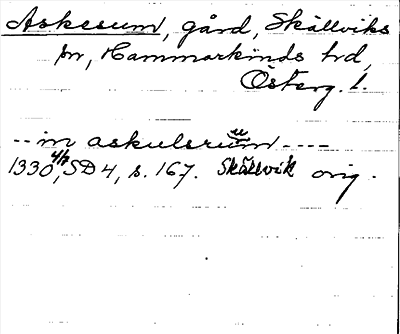 Askesum, gård, Skällviks
sn, Hammarkinds hd,
Österg. l.
-- in askulsrum ----
1330 4/7, SD 4, s. 167. Skällvik orig.